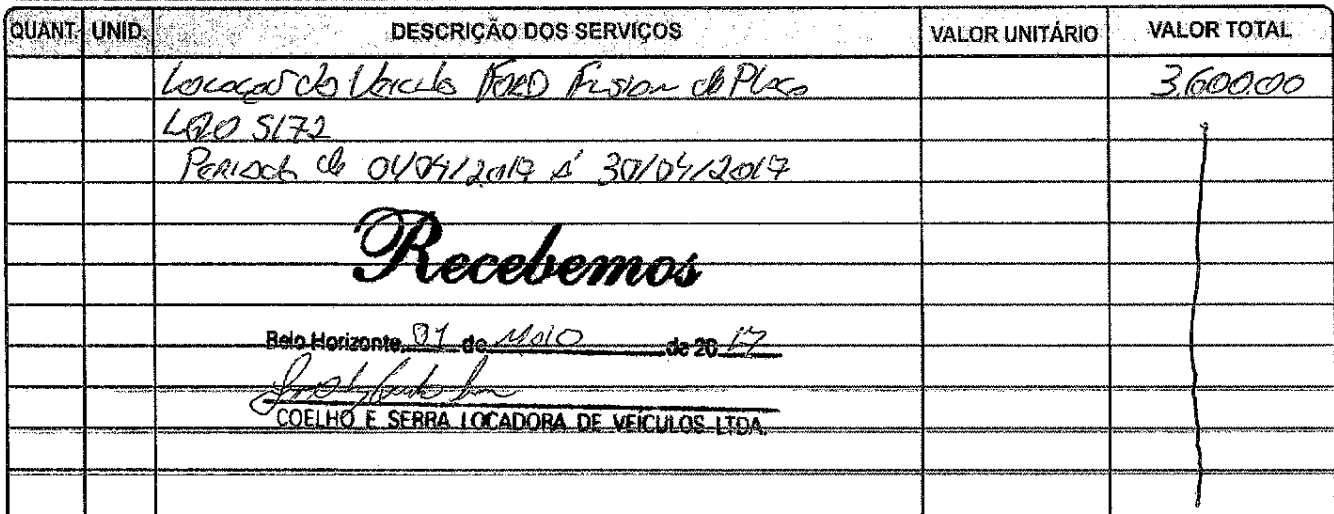 QUANT. UNID. DESCRIÇÃO DOS SERVIÇOS VALOR UNITÁRIO VALOR TOTAL
Locação do Veiculo FORD Fusion de Placa 3.600.00
5172
Periodo de 01/04/2017 á 30/04/2017
Recebemos
Belo Horizonte, 01 de Maio de 2017
COELHO E SERRA LOCADORA DE VEÍCULOS LTDA.